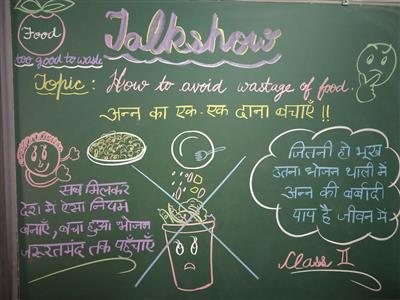 Food
too good to waste
Talkshow
Topic : How to avoid wastage of food.
अन्न का एक-एक दाना बचाएँ !!
सब मिलकर
देश में ऐसा नियम
बनाएँ, बचा हुआ भोजन
जरूरतमंद तक पहुँचाएँ
जितनी हो भूख
उतना भोजन थाली में
अन्न की बर्बादी
पाप है जीवन में
Class II